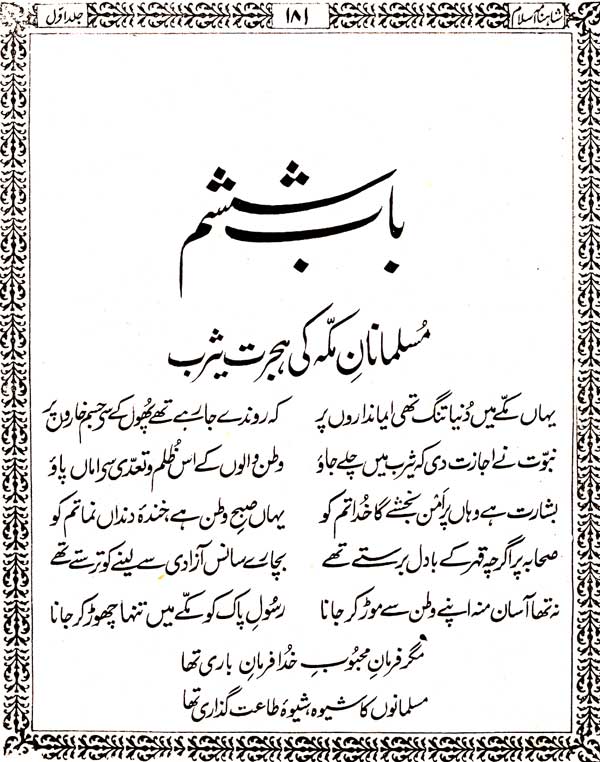 شاہنامہ اسلام ۱۸۱ جلد اوّل
باب ششم
مُسلمانانِ مکّہ کی ہجرت یثرب
یہاں مکّے میں دُنیا تنگ تھی ایمانداروں پر کہ روندے جا رہے تھے پُھول کے سی جسم خاروں پر
نبوّت نے اجازت دی کہ یثرب میں چلے جاؤ وطن والوں کے اس ظُلم و تعدّی سے اماں پاؤ
بشارت ہے وہاں پر امن بخشے گا خُدا تم کو یہاں صبحِ وطن ہے خندۂ دنداں نما تم کو
صحابہ پر اگرچہ قہر کے بادل برستے تھے بچارے سانس آزادی سے لینے کو ترستے تھے
نہ تھا آسان منہ اپنے وطن سے موڑ کر جانا رسُولِ پاک کو مکّے میں تنہا چھوڑ کر جانا
مگر فرمانِ محبُوبِ خُدا فرمانِ باری تھا
مسلمانوں کا شیوہ شیوۂ طاعت گذاری تھا